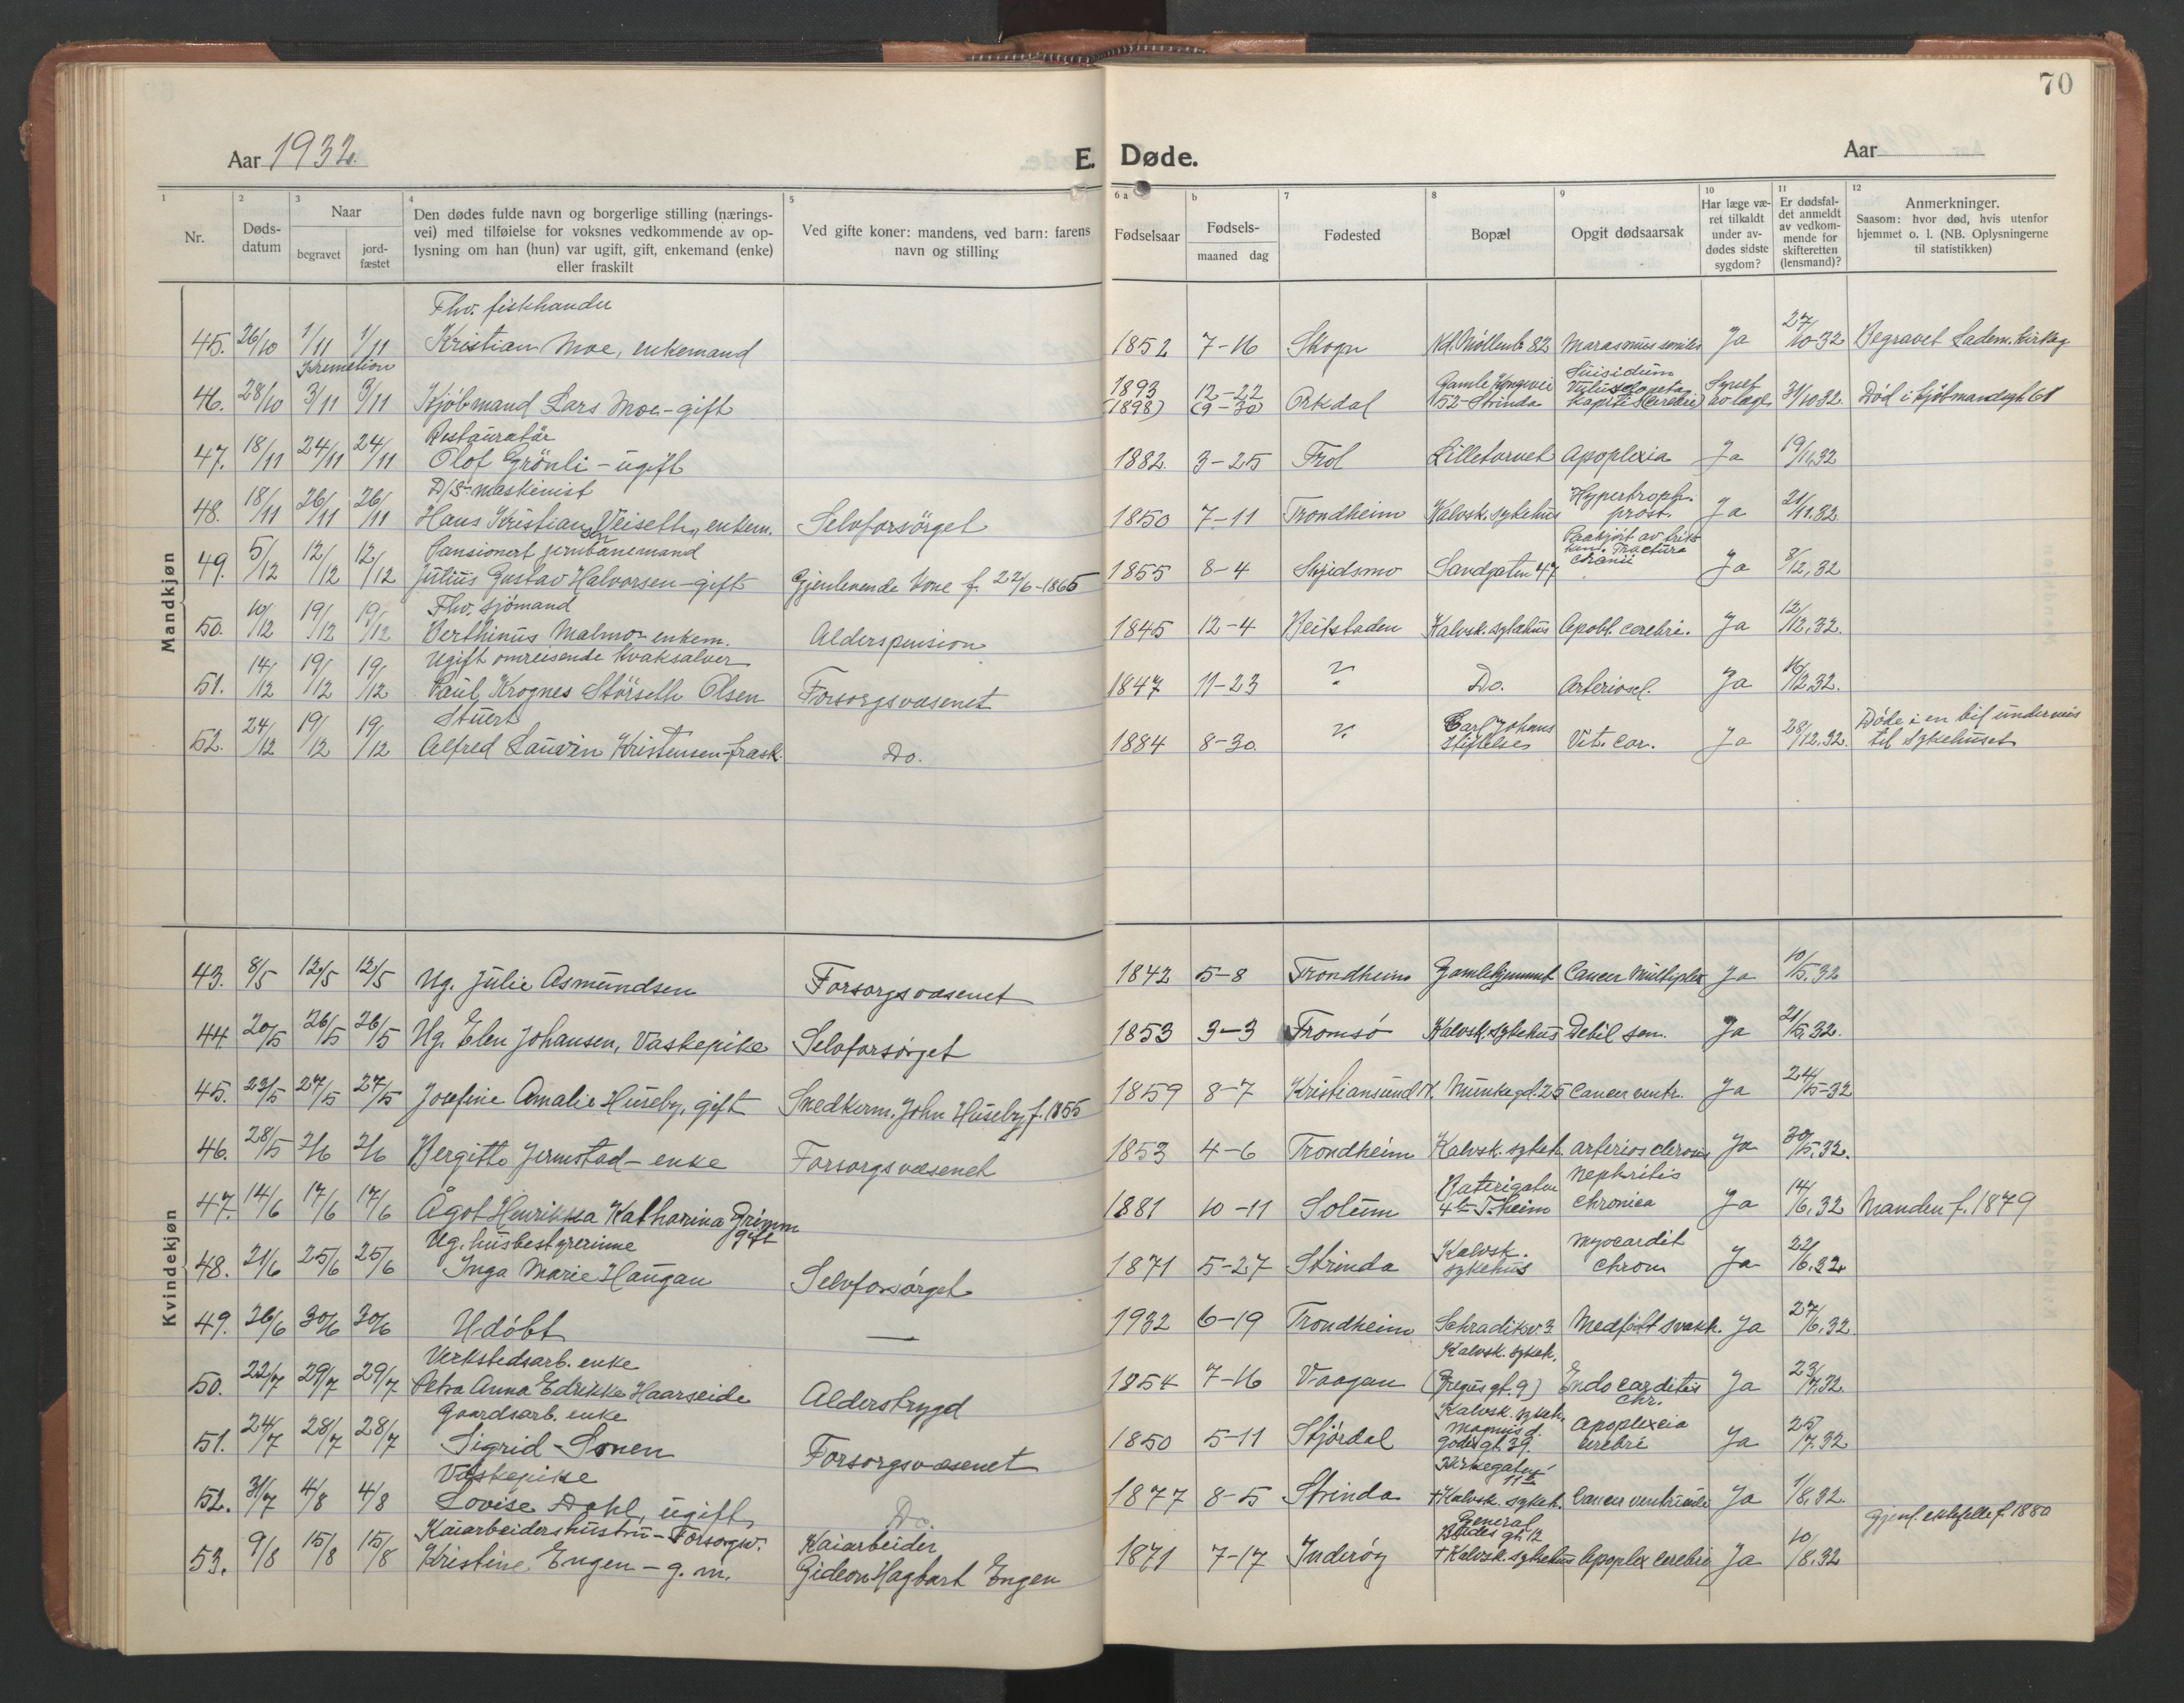 70
Aar 1932.
E. Døde.
Aar
1 2 3 4 5 6 a b 7 8 9 10 11 12
Nr.
Døds-
datum
Naar
begravet
jord-
fæstet
Den dødes fulde navn og borgerlige stilling (nærings-
vei) med tilføielse for voksnes vedkommende av op-
lysning om han (hun) var ugift, gift, enkemand (enke)
eller fraskilt
Ved gifte koner: mandens, ved barn: farens
navn og stilling
Fødselsaar
Fødsels-
maaned dag
Fødested
Bopæl
Opgit dødsaarsak
Har læge væ-
ret tilkaldt
under av-
dødes sidste
sygdom?
Er dødsfal-
det anmeldt
av vedkom-
mende for
skifteretten
(lensmand)?
Anmerkninger.
Saasom: hvor død, hvis utenfor
hjemmet o. l. (NB. Oplysningerne
til statistikken)
Mandkjøn
Fhv. fiskhandler
45. 26/10 1/11 1/11 Kristian Moe, enkemand 1852 7-16 Skogn Nd. Møllenb 82 Marasmus senilis Ja 27/10-32 Begravet Ladem. Kirkeg
Kremation
46. 28/10 3/11 3/11 Kjøbmand Lars Moe - gift 1893 (1898) 12-22 (9-30) Orkdal Gamle Kongevei 52 - Strinda Suisidum Kapitis (cerebri) Synet av læge 31/10 32. Død i Kjøbmandsgt. 61
Restauratør
47. 18/11 24/11 24/11 Olof Grönli - ugift 1882 3-25 Frol Lilletorvet Apoplexia Ja 19/11,32
D/S-maskinist
48. 18/11 26/11 26/11 Hans Kristian Veiseth, enkem. Selvforsörget 1850 7-11 Trondheim Kalvsk. sykehus Hypertroph. prost. Ja 21/11.32
Pansionert jernbanemand
49. 5/12 12/12 12/12 Julius Gustav Halvorsen - gift Gjenlevende kone f. 22/6-1865 1855 8-4 Skjedsmo Sandgaten 47 Paakjört av trikk Fractura cranii Ja 8/12,32
Fhv. sjömand
50. 10/12 19/12 19/12 Berthinus Malmo - enkem. Alderspension 1845 12-4 Beitstaden Kalvsk. sykehus Apopl. cerebri. Ja 12/12,32.
Ugift omreisende kvaksalver
51. 14/12 19/12 19/12 Paul Krognes Störseth Olsen Forsorgsvæsenet 1847 11-23 ? Do. Arterioscl. Ja 16/12,32.
Stuert
52. 24/12 19/12 19/12 Alfred Lauvin Kristensen - frask. Do. 1884 8-30 ? Carl Johans Stiftelses Vit. cor. Ja 28/12.32. Døde i en bil underveis til Sykehuset
Kvindekjøn
43. 8/5 12/5 12/5 Ug. Julie Asmundsen Forsorgsvæsenet 1842 5-8 Trondheim Gamlehjemmet Cancer Multiplex Ja 10/5.32
44. 20/5 26/5 26/5 Ug. Elen Johansen, Vaskepike Selvforsörget 1853 3-3 Tromsö Kalvsk. sykehus Debil sen. Ja 21/5 32.
45. 23/5 27/5 27/5 Josefine Amalie Huseby, gift Snedkerm. John Huseby f. 1855 1859 8-7 Kristiansund N. Munkegd. 25 Cancer ventr. Ja 24/5-32
46. 28/5 2/6 2/6 Bergitte Jermstad - enke Forsorgsvæsenet 1853 4-6 Trondheim Kalvsk. sykeh. Arteriosclerosis Ja 30/5,32.
47. 14/6 17/6 17/6 Ågot Henrikka Katharina Grimm gift 1881 10-11 Solum Baterigaten 4b T.heim Nephritis chronica Ja 14/6,32 Manden f. 1879
Ug. husbestyrerinne
48. 21/6 25/6 25/6 Inga Marie Haugan Selvforsörget 1871 5-27 Strinda Kalvsk. sykehus Myocardit chron Ja 22/6.32
49. 26/6 30/6 30/6 Udöbt — 1932 6-19 Trondheim Schradikv. 3. Medfödt svakh. Ja 27/6,32.
Verkstedsarb. enke
50. 22/7 29/7 29/7 Petra Anna Edrikke Haarseide Alderstrygd 1854 7-16 Vaagan Kalvsk. sykeh. (Gregus gt. 9) Endocarditis chr. Ja 23/7.32.
Gaardsarb. enke
51. 24/7 28/7 28/7 Sigrid Sonen Forsorgsvæsenet 1850 5-11 Stjördal Kalvsk. sykeh. Magnus d. Godes gt. 39. Apoplexia cerebri Ja 25/7.32
Vaskepike
52. 31/7 4/8 4/8 Lovise Dahl, ugift Do. 1877 8-5 Strinda Kirkegaten 11 † Kalvsk. sykeh. Cancer ventriculi Ja 1/8.32.
Kaiarbeidershustru - Forsorgsv.
53. 9/8 15/8 15/8 Kristine Engen - g. m. Kaiarbeider Gideon Hagbart Engen 1871 7-17 Inderøy General Buddes gt. 12 † Kalvsk. sykehus Apoplex cerebri Ja 10/8.32 Gjenl. ektefelle f. 1880